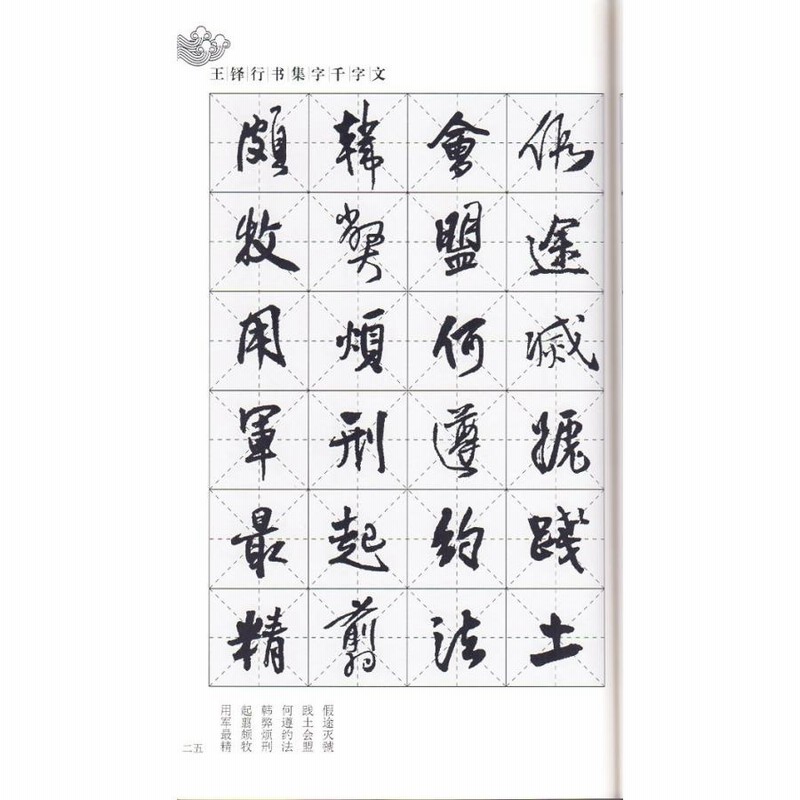 王铎行书集字千字文
假途滅虢踐土
會盟何遵約法
韓獘煩刑起翦
頗牧用軍最精
假途灭虢
践土会盟
何遵约法
韩弊烦刑
起翦颇牧
用军最精
二五